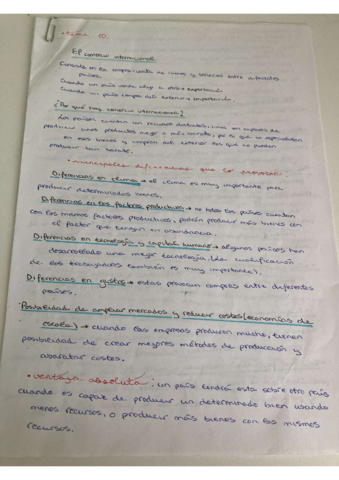 • tema 10.
El comercio internacional.
Consiste en la compraventa de bienes y servicios entre diferentes
países.
Cuando un país vende algo a otro → exportación
Cuando un país compra del exterior → importación.
¿Por qué hay comercio internacional?
Los países cuentan con recursos distintos, unos son capaces de
producir unos productos mejor o más barato, por lo que se especializan
en esos bienes y compran del exterior los que no pueden
producir tan barato.
• principales diferencias que lo provocan.
Diferencias en clima → el clima es muy importante para
producir determinados bienes.
Diferencias en los factores productivos → no todos los países cuentan
con los mismos factores productivos, podrán producir más bienes con
el factor que tengan en abundancia.
Diferencias en tecnología y capital humano → algunos países han
desarrollado una mejor tecnología. (La cualificación
de los trabajadores también es muy importante).
Diferencias en gustos → estas provocan compras entre diferentes
países.
Posibilidad de ampliar mercados y reducir costes (economías de
escala) → cuando las empresas producen mucho, tienen
posibilidad de crear mejores métodos de producción y
abaratar costes.
• ventaja absoluta: un país tendrá esta sobre otro país
cuando es capaz de producir un determinado bien usando
menos recursos, o producir más bienes con los mismos
recursos.